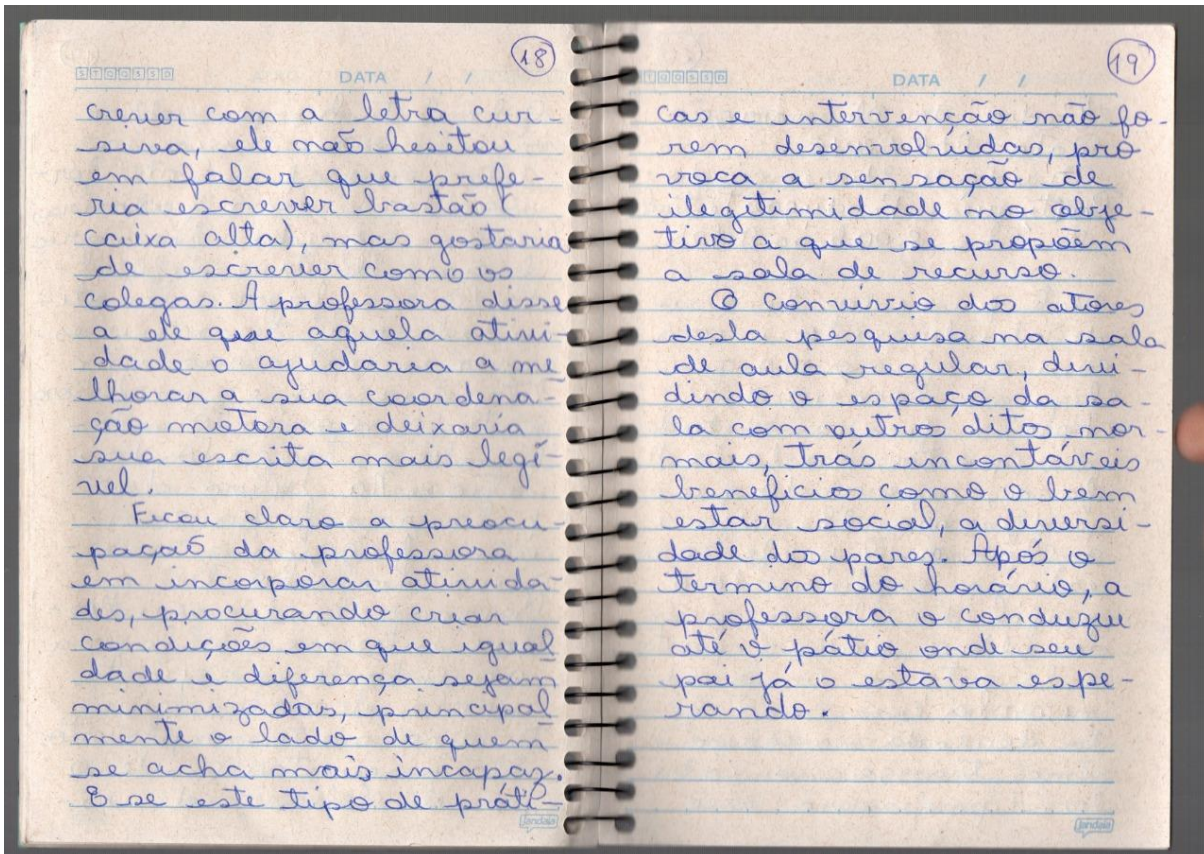 18
STQQSSD DATA / /
crever com a letra cur-
siva, ele não hesitou
em falar que prefe-
ria escrever bastão (
caixa alta), mas gostaria
de escrever como os
colegas. A professora disse
a ele que aquela ativi-
dade o ajudaria a me
lhorar a sua coordena-
ção motora e deixaria
sua escrita mais legí-
vel.
Ficou claro a preocu-
pação da professora
em incorporar ativida-
des, procurando criar
condições em que igual
dade e diferença sejam
minimizadas, principal
mente o lado de quem
se acha mais incapaz.
E se este tipo de práti-
jandaia
19
TQQSSD DATA / /
cas e intervenção não fo-
rem desenvolvidas, pro
voca a sensação de
ilegitimidade no obje-
tivo a que se propõem
a sala de recurso.
O convívio dos atores
desta pesquisa na sala
de aula regular, divi-
dindo o espaço da sa-
la com outros ditos nor-
mais, trás incontáveis
benefícios como o bem
estar social, a diversi-
dade dos parez. Após o
termino do horário, a
professora o conduziu
até o pátio onde seu
pai já o estava espe-
rando.
jandaia